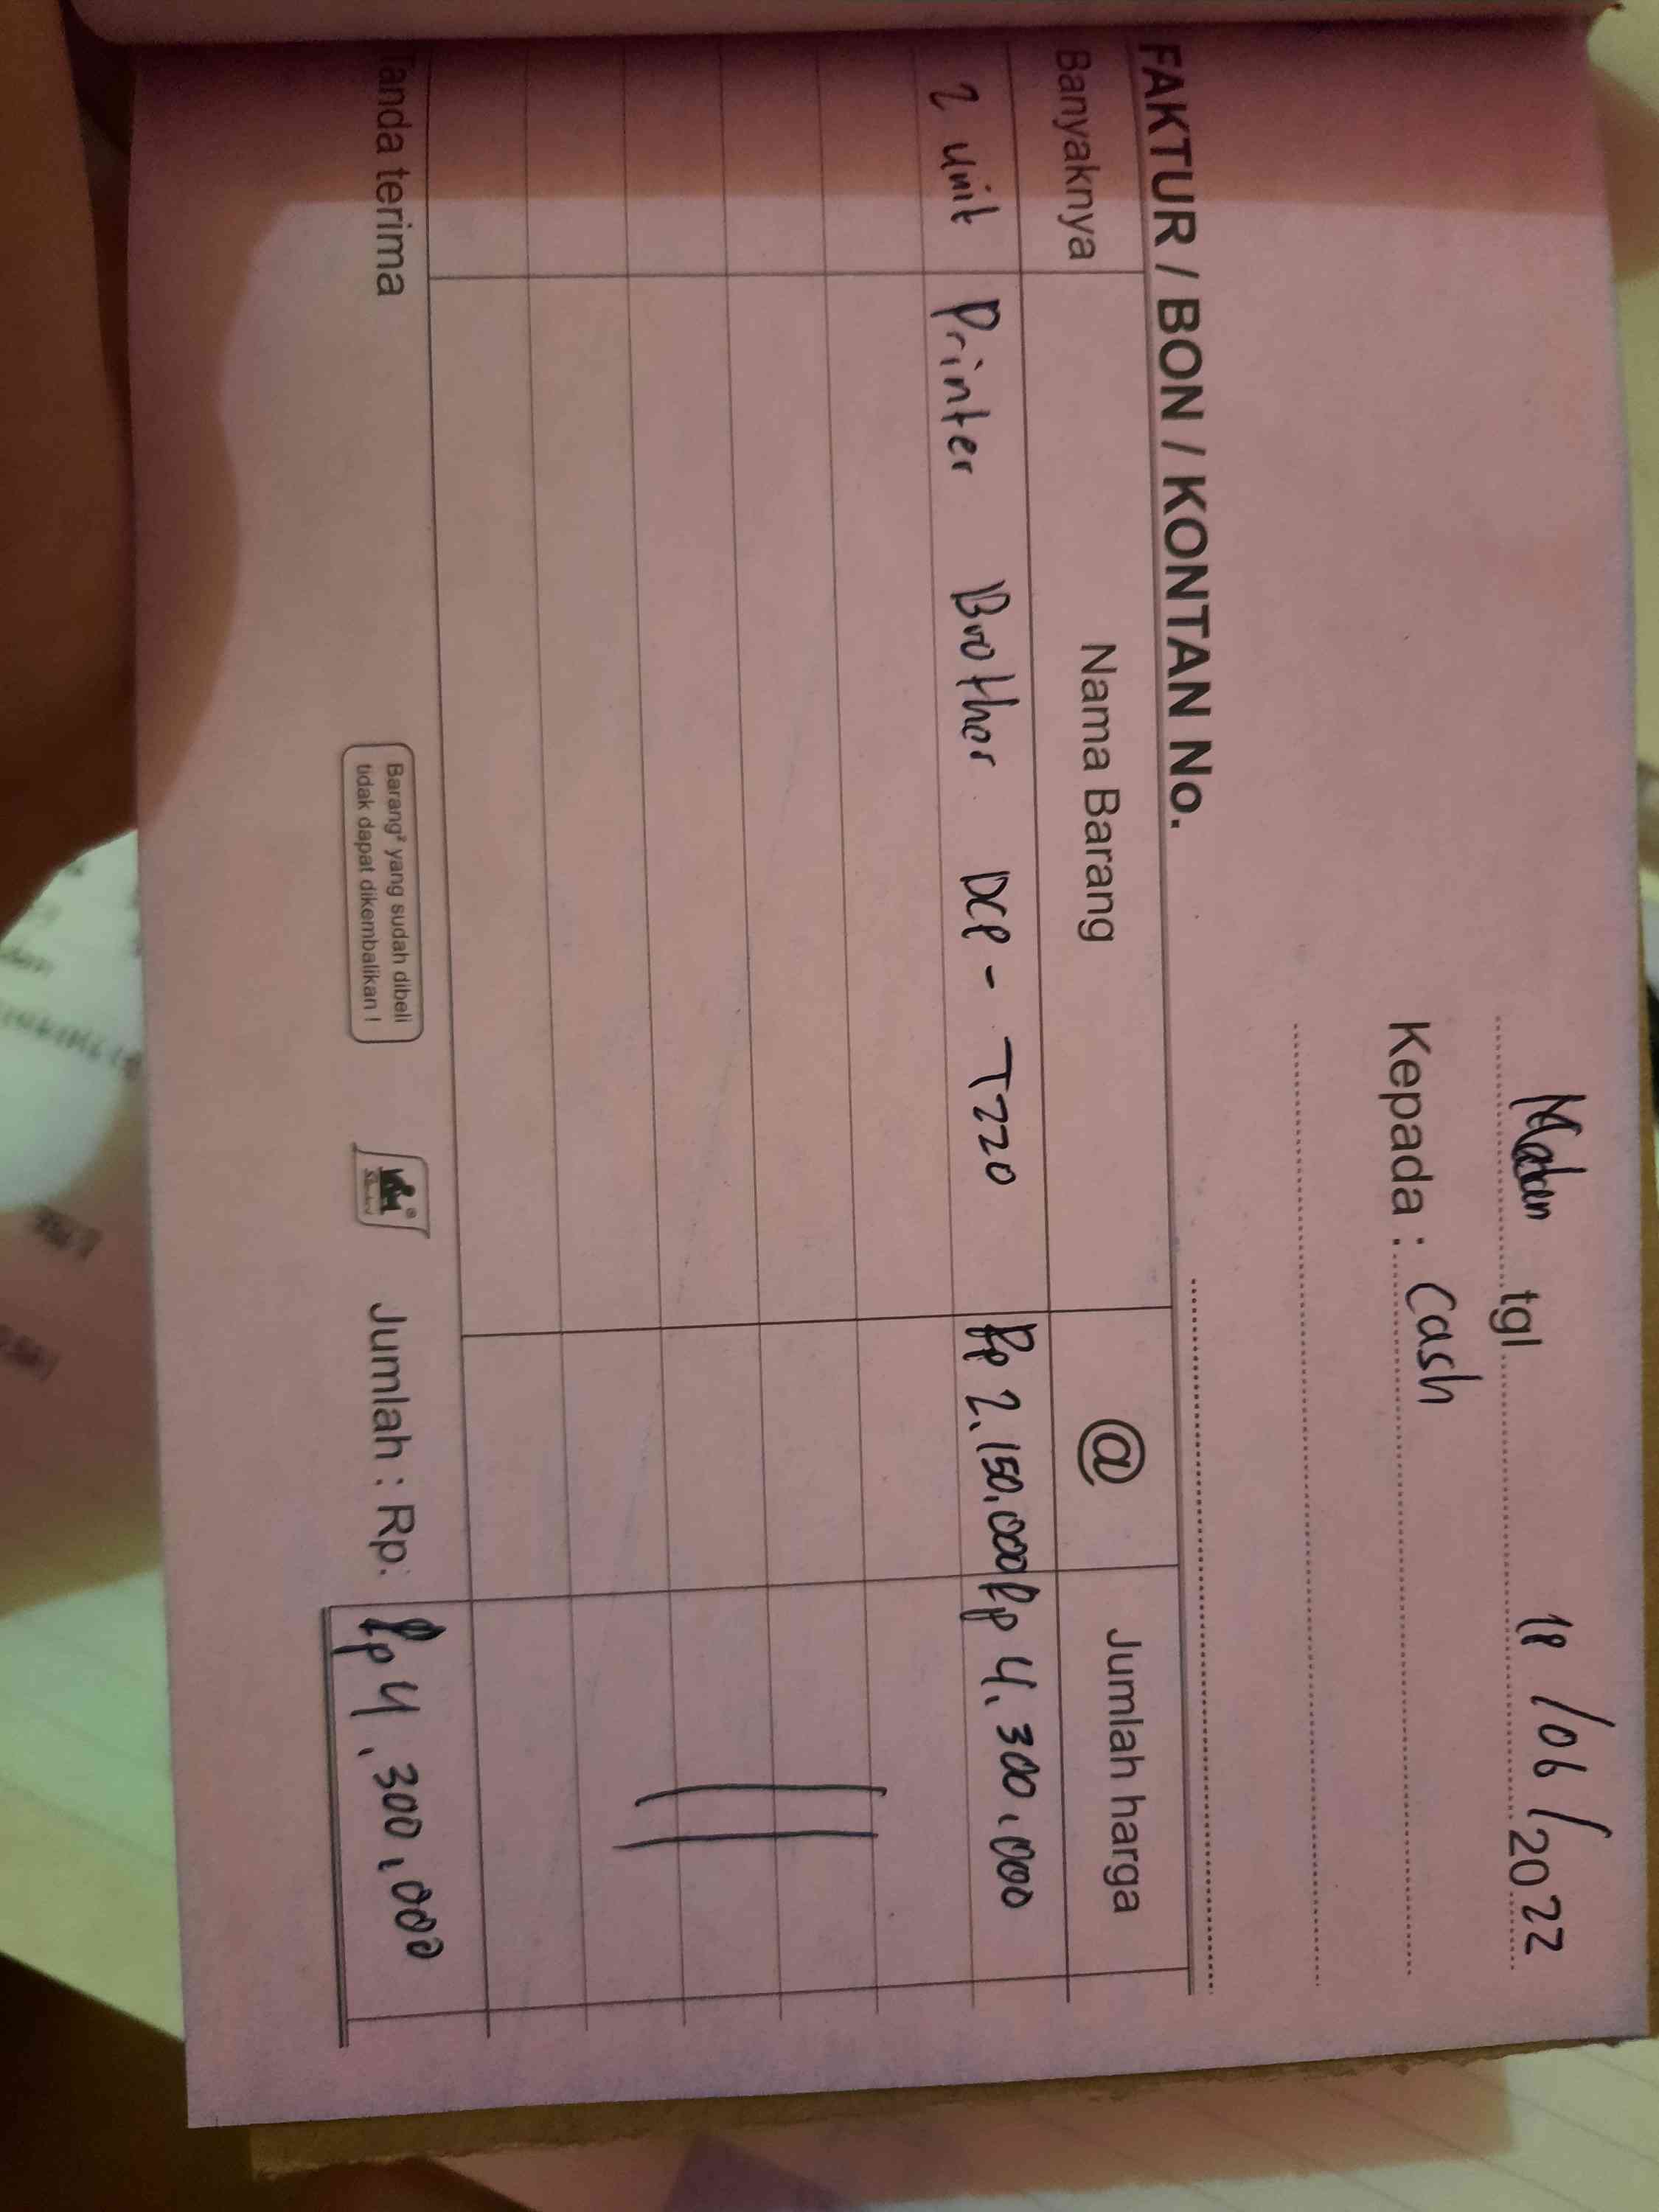 Medan tgl. 18 / 06 / 2022
Kepada : Cash
FAKTUR / BON / KONTAN No.
Banyaknya Nama Barang @ Jumlah harga
2 unit Printer Brother DCP - T220 Rp 2.150.000 Rp 4.300.000
Tanda terima
Barang² yang sudah dibeli
tidak dapat dikembalikan !
Jumlah : Rp. Rp 4.300.000